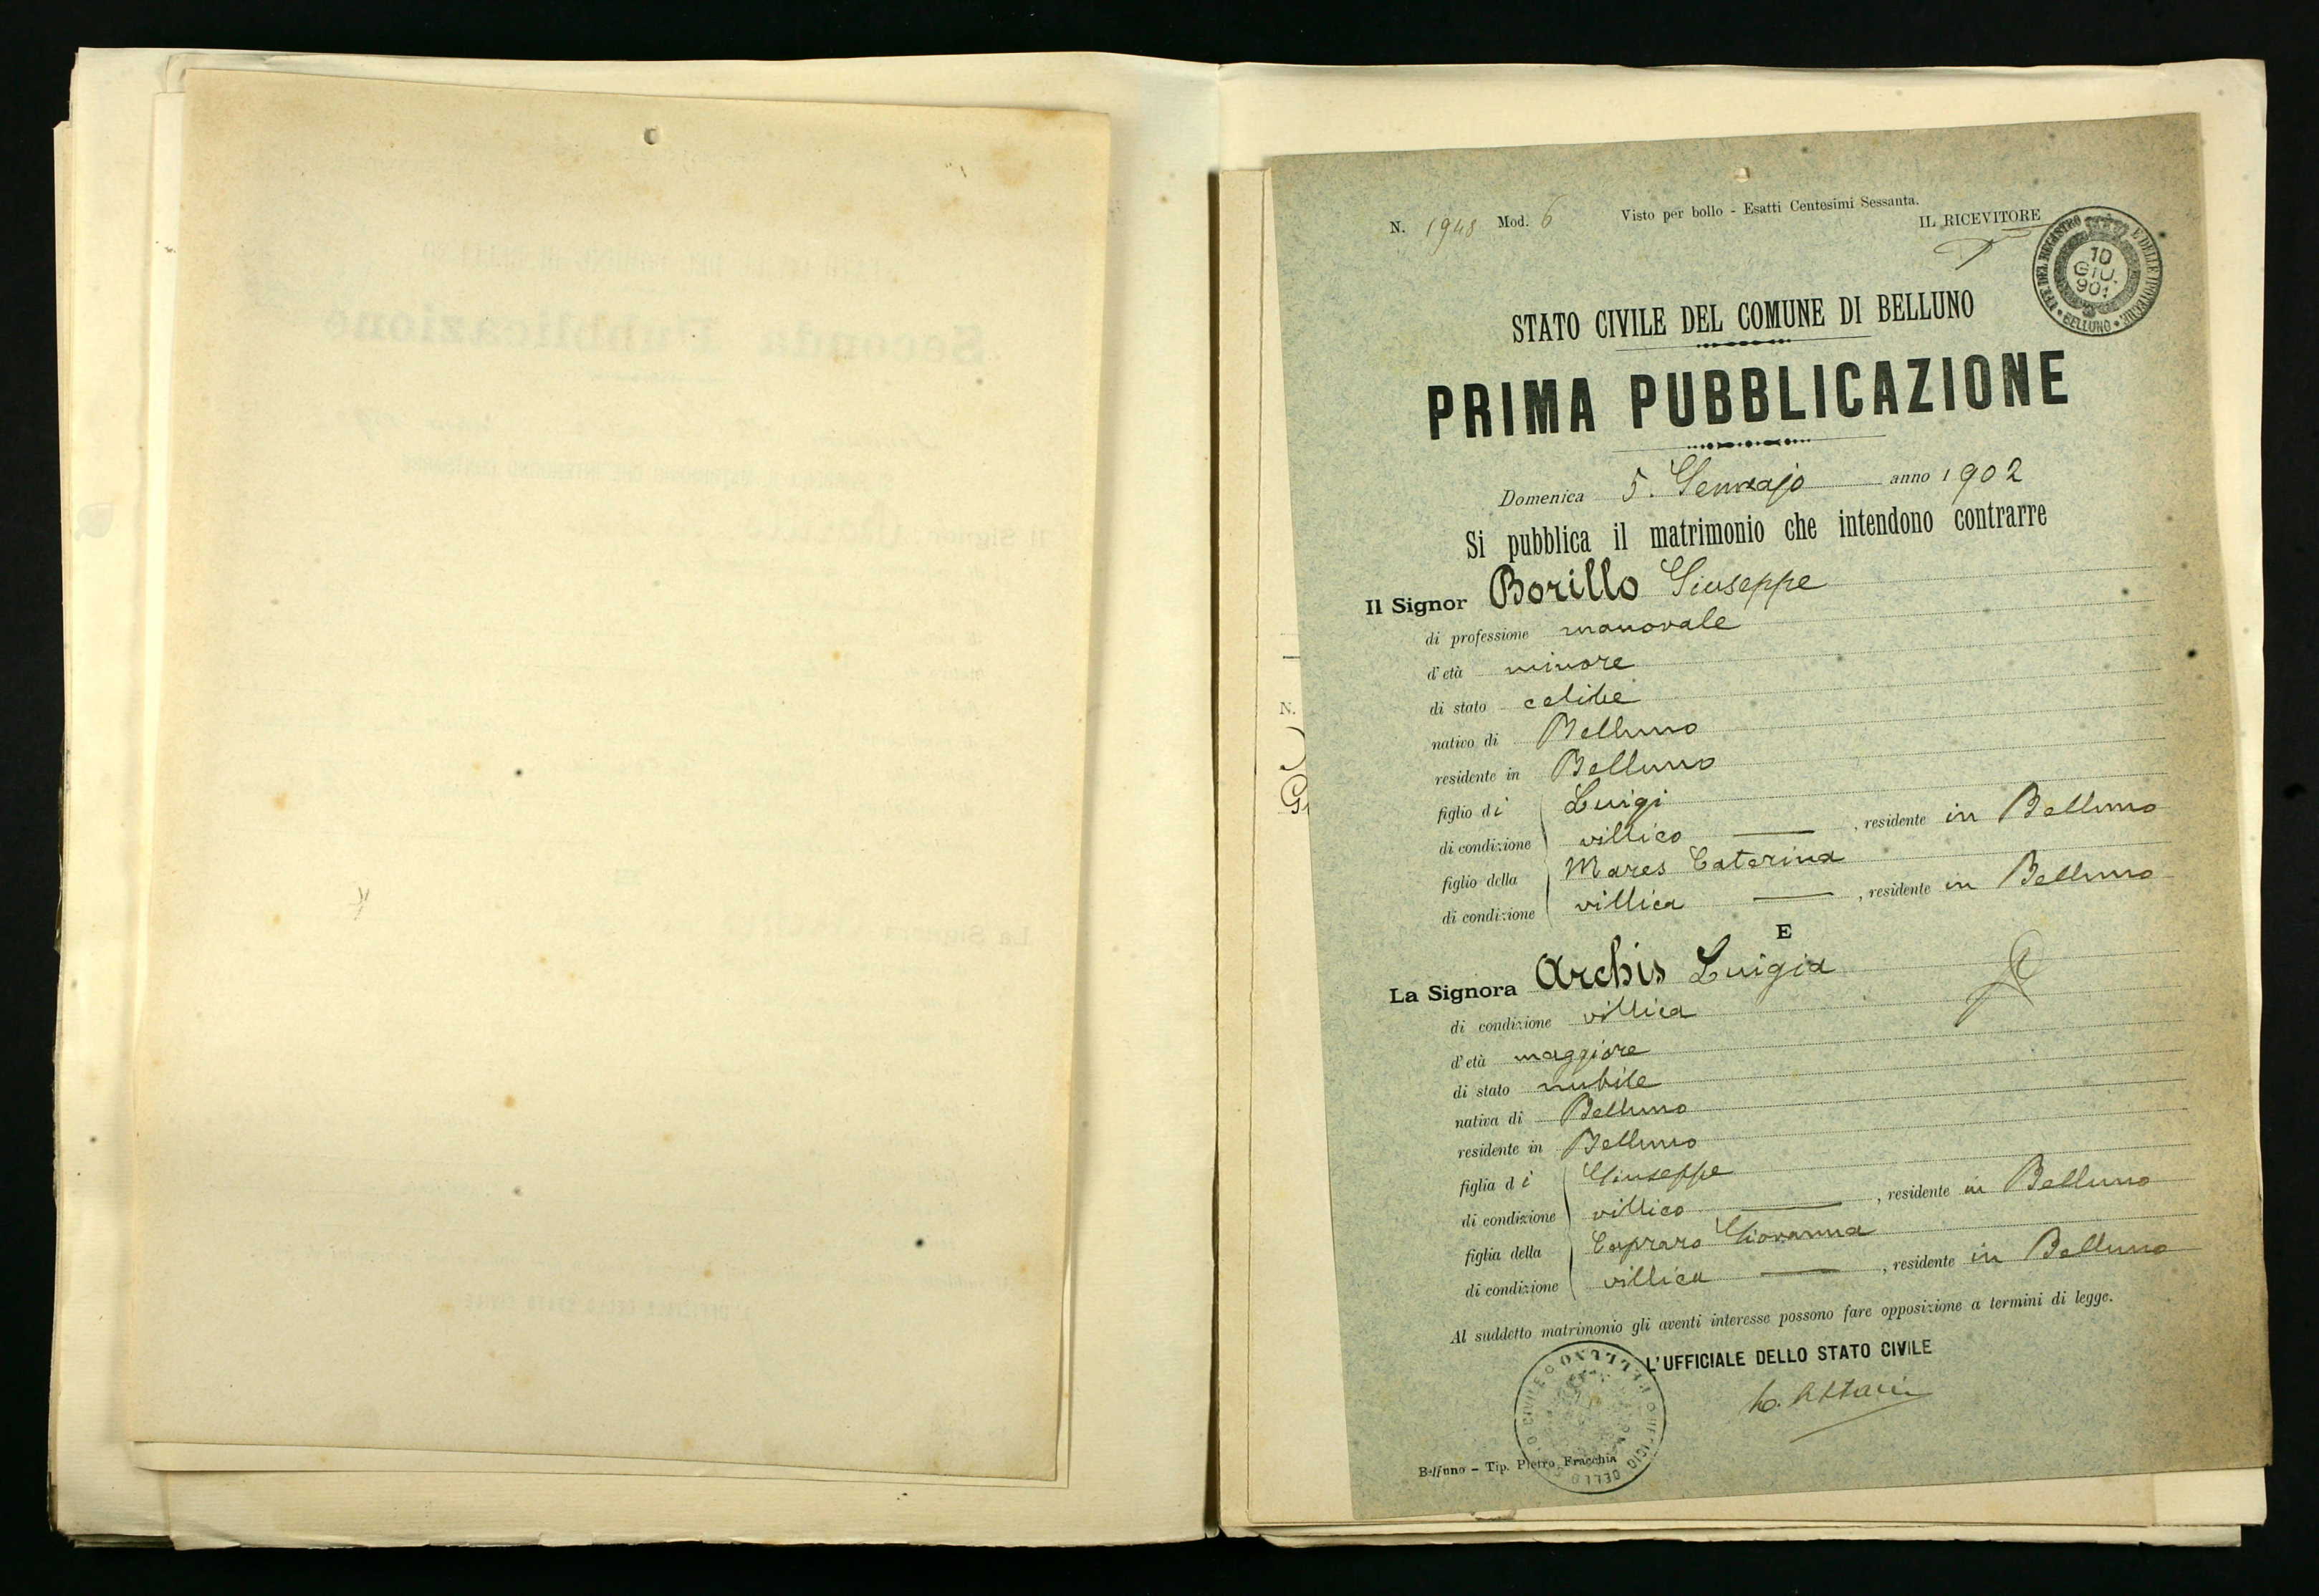 N. 1948 Mod. 6 Visto per bollo - Esatti Centesimi Sessanta.
IL RICEVITORE
UFF. DEL REGISTRO E DELLE IPOTECHE • BELLUNO •
10
GIU.
901
STATO CIVILE DEL COMUNE DI BELLUNO
PRIMA PUBBLICAZIONE
Domenica 5. Gennajo anno 1902
Si pubblica il matrimonio che intendono contrarre
Il Signor Borillo Giuseppe
di professione manovale
d'età minore
di stato celibe
nativo di Belluno
residente in Belluno
figlio di Luigi
di condizione villico , residente in Belluno
figlio della Mares Caterina
di condizione villica , residente in Belluno
E
La Signora Archis Luigia
di condizione villica
d'età maggiore
di stato nubile
nativa di Belluno
residente in Belluno
figlia di Giuseppe
di condizione villico , residente in Belluno
figlia della Capraro Giovanna
di condizione villica , residente in Belluno
Al suddetto matrimonio gli aventi interesse possono fare opposizione a termini di legge.
L'UFFICIALE DELLO STATO CIVILE
Belluno - Tip. Pietro Fracchia
N.
Seconda Pubblicazione
Il Signor
La Signora